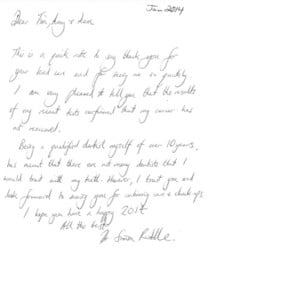 Jan 2014
Dear Tim, Amy & Dave
This is a quick note to say thank you for
your kind care and for seeing me so quickly
I am very pleased to tell you that the results
of my recent tests confirmed that my cancer has
not returned.
Being a qualified dentist myself of over 10 years,
has meant that there are not many dentists that I
would trust with my teeth. However, I trust you and
look forward to seeing you for continuing care & check ups.
I hope you have a happy 2014
All the best
Simon